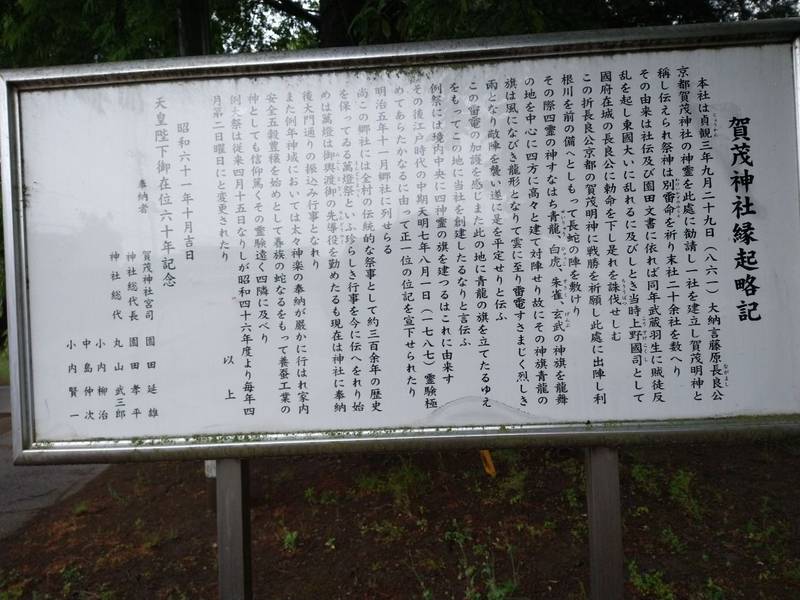 賀茂神社縁起略記
本社は貞観三年九月二十九日(八六一)大納言藤原長良公
京都賀茂神社の神霊を此處に勧請し一社を建立し賀茂明神と
称し伝えられ祭神は別雷命を祈り末社二十余社を数へり
その由来は社伝及び園田文書に依れば同年武蔵羽生に賊徒反
乱を起し東國大いに乱れるに及びしとき当時上野國司として
國府在城の長良公に勅命を下し是れを誅伐せしむ
この折長良公京都の賀茂明神に戦勝を祈願し此處に出陣し利
根川を前の備へとしもって長蛇の陣を敷けり
その際四霊の神すなはち青龍、白虎、朱雀、玄武の神旗を龍舞
の地を中心に四方に高々と建て対陣せり故にその神旗青龍の
旗は風になびき龍形となりて雲に至り雷電すさまじく烈しき
雨となり敵陣を襲い遂に是を平定せりと伝ふ
この雷電の加護を感じまた此の地に青龍の旗を立てたるゆえ
をもってこの地に当社を創建したるなりと言伝ふ
例祭には境内中央に四神霊の旗を建つるはこれに由来す
その後江戸時代の中期天明七年八月一日(一七八七)霊験極
めてあらたかなるに由って正一位の位記を宣下せられたり
明治五年十一月郷社に列せらる
尚この郷社には全村の伝統的な祭事として約三百余年の歴史
を保ってゐる萬燈祭といふ珍らしき行事を今に伝へをれり始
めは萬燈は御輿渡御の先導役を勤めたるも現在は神社に奉納
後大門通りの振込み行事となれり
また例年神域においては太々神楽の奉納が厳かに行はれ家内
安全五穀豊穣を始めとして養蚕の蛇なるをもって養蚕工業の
神としても信仰篤くその霊験遠く四隣に及べり
例大祭は従来四月十五日なりしが昭和四十六年度より毎年四
月第二日曜日にと変更されたり
以上
昭和六十一年十月吉日
天皇陛下御在位六十年記念
奉納者
賀茂神社宮司 園田延雄
神社総代長 園田孝平
神社総代 丸山武三郎
小内柳治
中島仲次
小内賢一